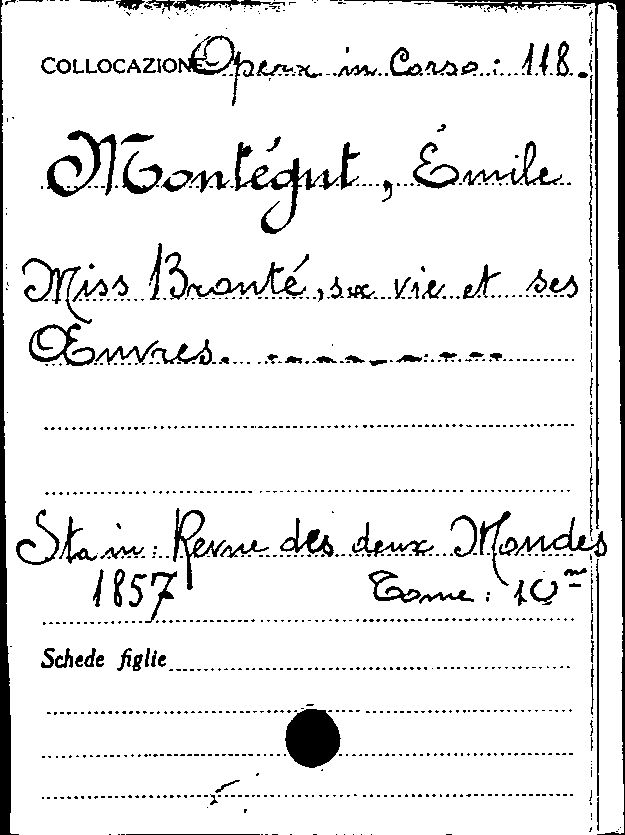 COLLOCAZIONE Opera in Corso: 118.
Montégut, Émile
Miss Bronté, sa vie et ses
Œuvres.
Sta in: Revue des deux Mondes
1857 Tome: 10me
Schede figlie